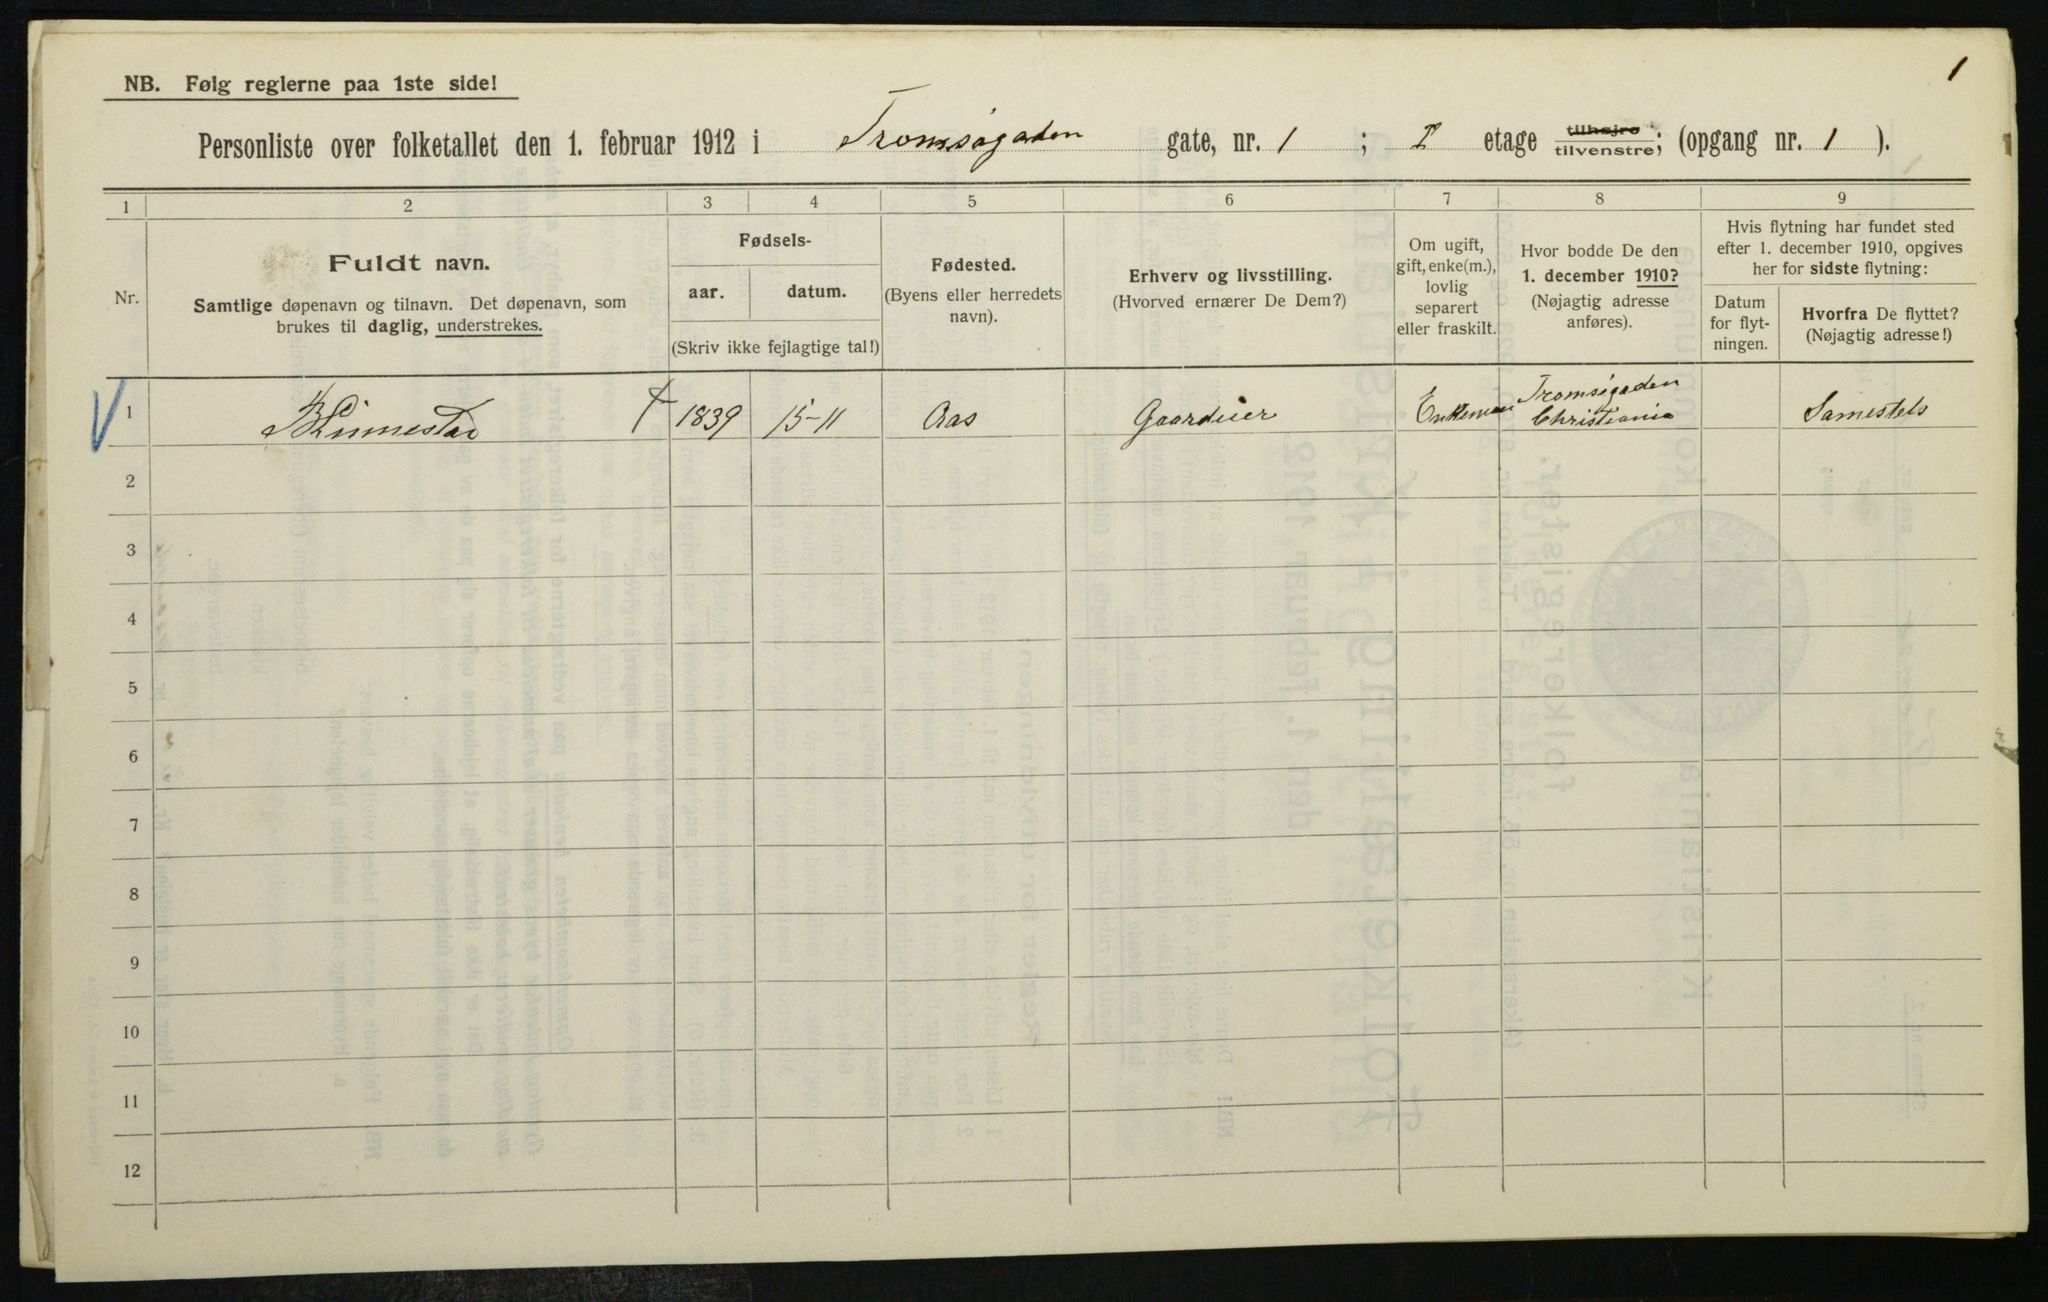 1
NB. Følg reglerne paa 1ste side!
Personliste over folketallet den 1. februar 1912 i Tromsøgaden gate, nr. 1 ; I etage tilhøjre tilvenstre; (opgang nr. 1 ).
1 2 3 4 5 6 7 8 9
Nr.
Fuldt navn.
Samtlige døpenavn og tilnavn. Det døpenavn, som
brukes til daglig, understrekes.
Fødsels-
aar. datum.
(Skriv ikke fejlagtige tal!)
Fødested.
(Byens eller herredets
navn).
Erhverv og livsstilling.
(Hvorved ernærer De Dem?)
Om ugift,
gift, enke(m.),
lovlig
separert
eller fraskilt.
Hvor bodde De den
1. december 1910?
(Nøjagtig adresse
anføres).
Hvis flytning har fundet sted
efter 1. december 1910, opgives
her for sidste flytning:
Datum
for flyt-
ningen.
Hvorfra De flyttet?
(Nøjagtig adresse!)
1 1839 15-11 Aas Gaardeier Enkeman Tromsøgaden
Christiania Samesteds
2
3
4
5
6
7
8
9
10
11
12